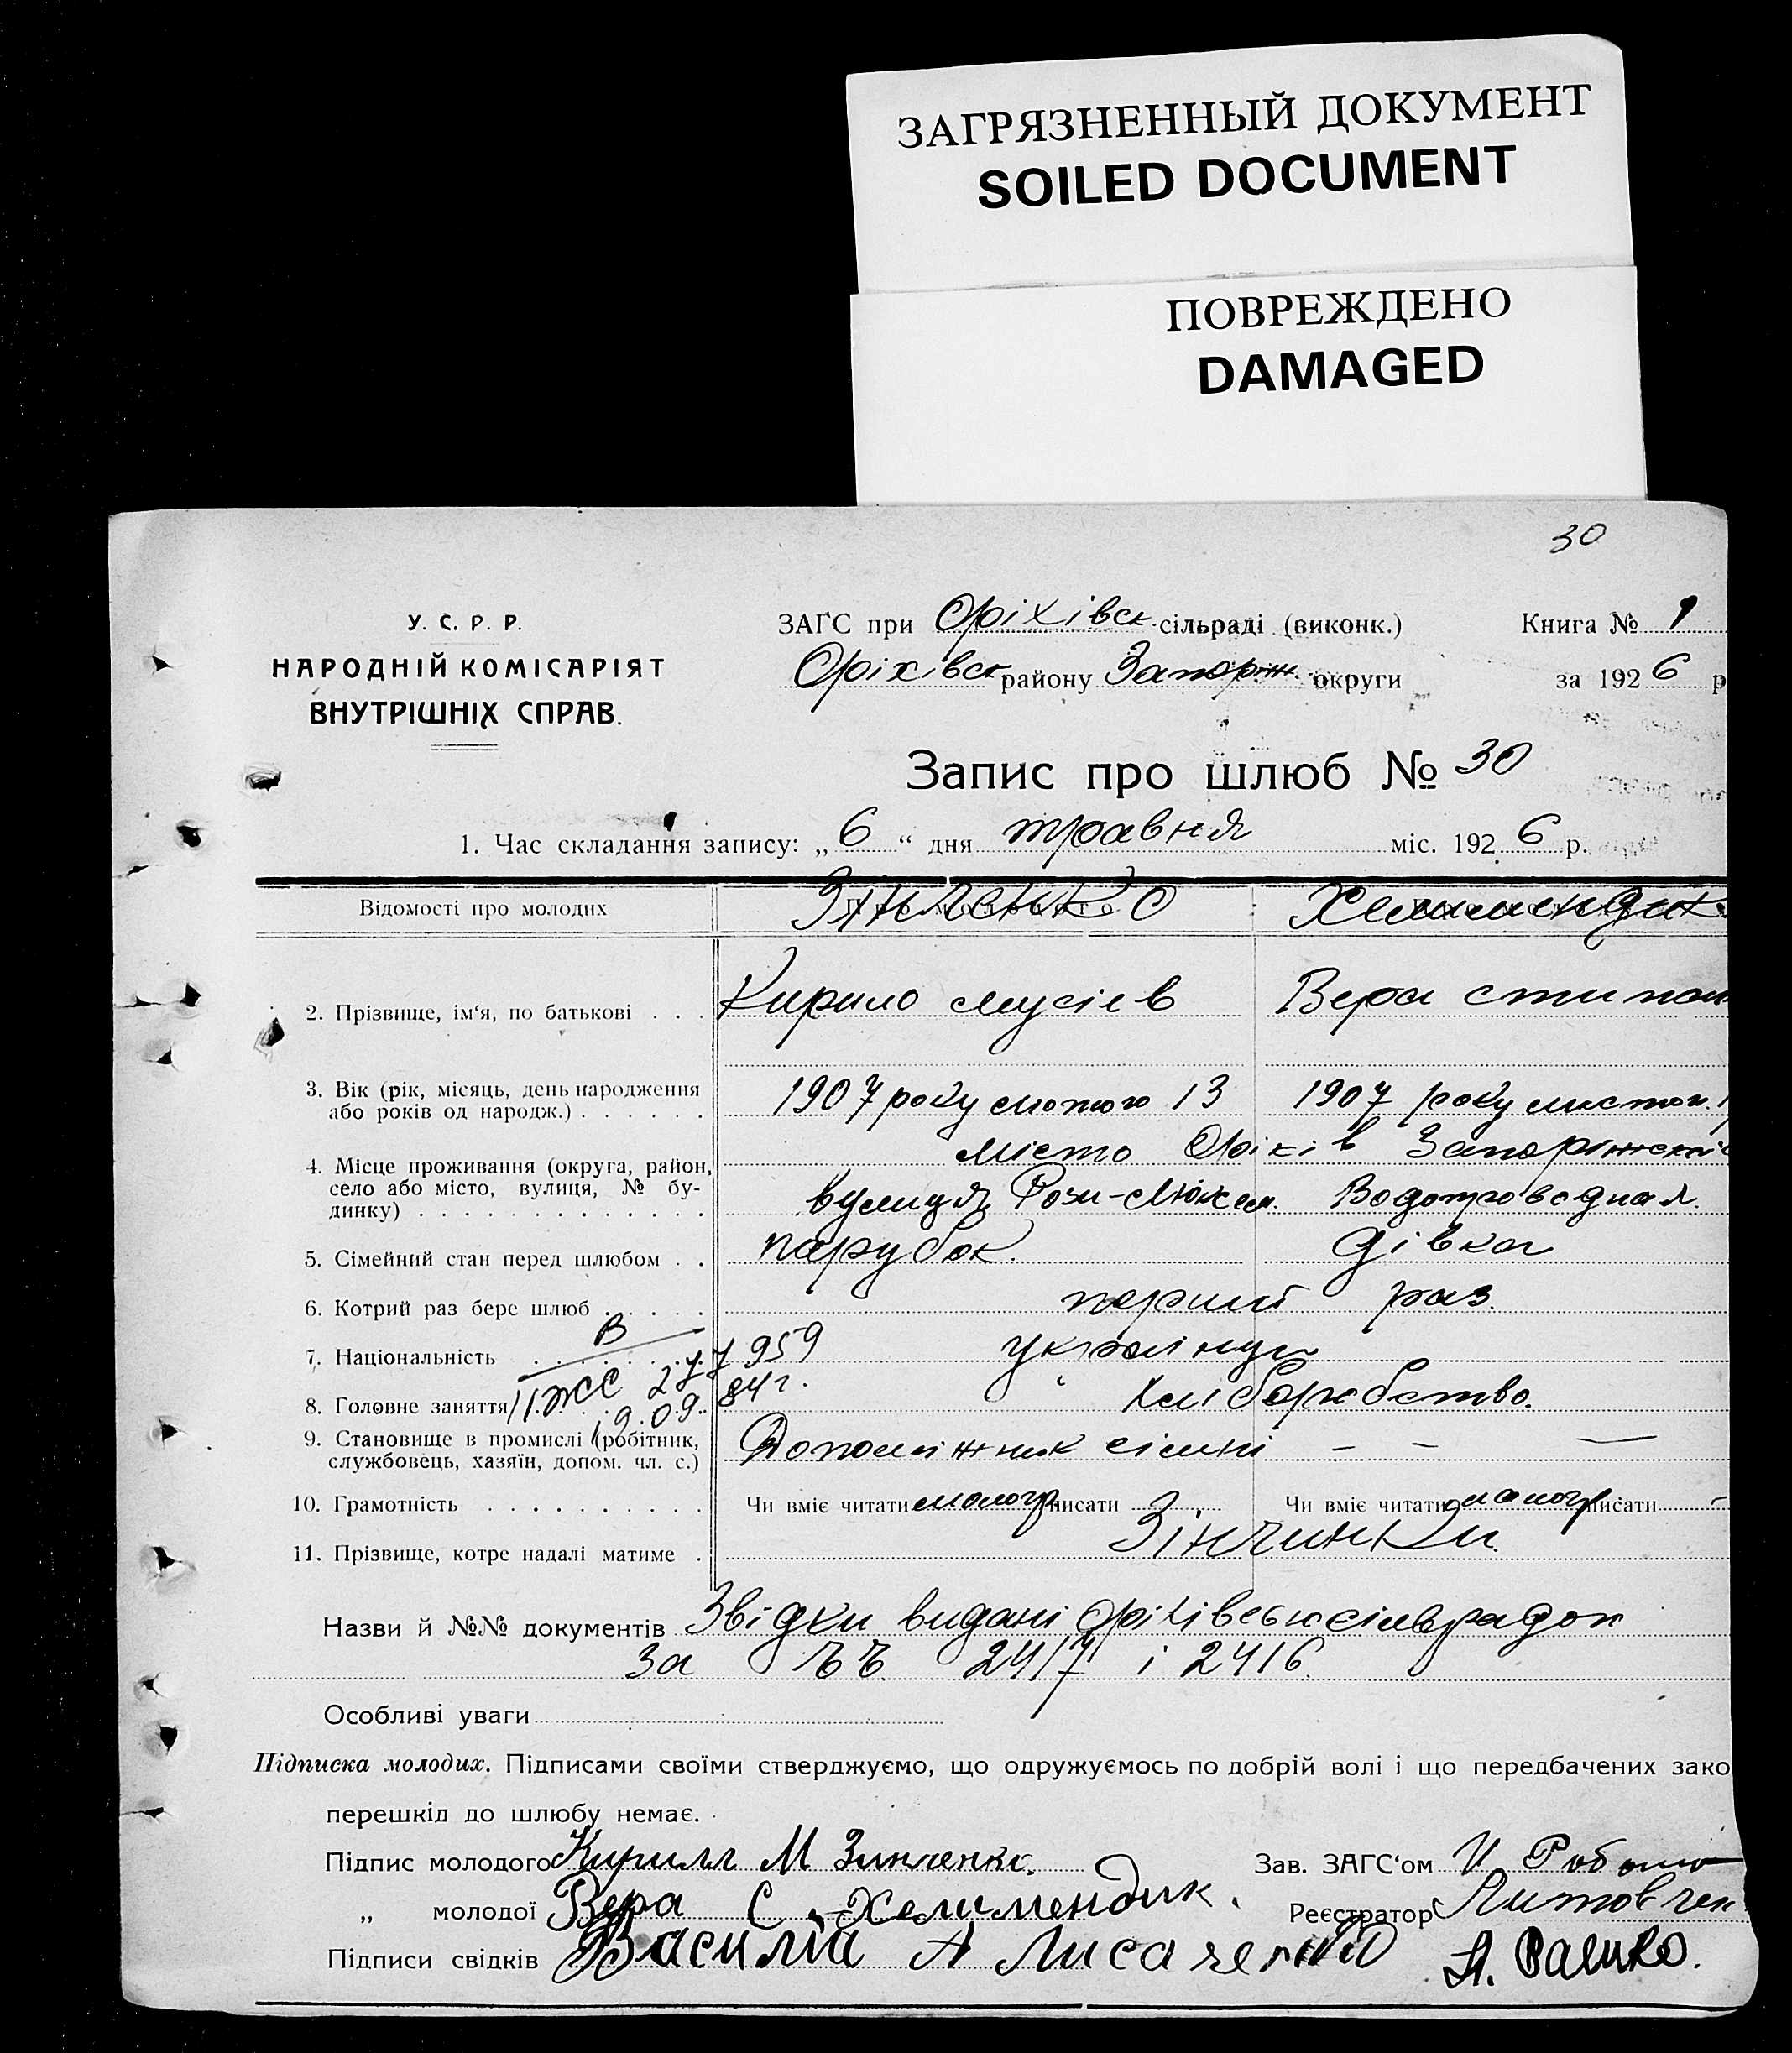 ЗАГРЯЗНЕННЫЙ ДОКУМЕНТ
SOILED DOCUMENT
ПОВРЕЖДЕНО
DAMAGED
30
У. С. Р. Р.
НАРОДНІЙ КОМІСАРІЯТ
ВНУТРІШНІХ СПРАВ.
ЗАГС при Оріхівск. сільраді (виконк.)
Оріхівск району Запоріж. округи
Книга № 1
за 1926 р
Запис про шлюб № 30
1. Час складання запису: „ 6 “ дня травня міс. 1926 р.
Відомості про молодих Зінченко
2. Прізвище, ім‘я, по батькові . . . Кирило Мусіев Вера
3. Вік (рік, місяць, день народження 1907 року лютого 13 1907 року листоп.
або років од народж.) . . . . . .
місто Оріхів
4. Місце проживання (округа, район,
село або місто, вулиця, № бу- вулиця Рози-Люксем.
динку) . . . . . . . . . . . . .
5. Сімейний стан перед шлюбом . . парубок. дівка
6. Котрий раз бере шлюб . . . . . перший раз.
7. Національність . . . . . . . . . українци
8. Головне заняття хліборобство.
9. Становище в промислі (робітник, Допоміжник сімні — — —
службовець, хазяїн, допом. чл. с.)
10. Грамотність . . . . . . . . . . Чи вміє читати писати Чи вміє читати писати
11. Прізвище, котре надалі матиме . Зінчинки.
Назви й №№ документів Звідки видані
за 2417 і 2416.
Особливі уваги
Підписка молодих. Підписами своїми стверджуємо, що одружуємось по добрій волі і що передбачених зако
перешкід до шлюбу немає.
Підпис молодого Кирилл М Зинченко. Зав. ЗАГС‘ом
„ молодої Вера С. Хелимендик. Реєстратор Литовчен
Підписи свідків Василій А Лисаченко